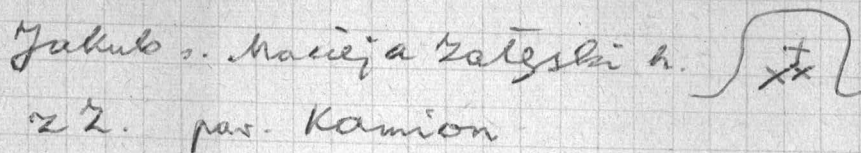 Jakub s. Macieja Załęski h.
z Z. par. Kamion